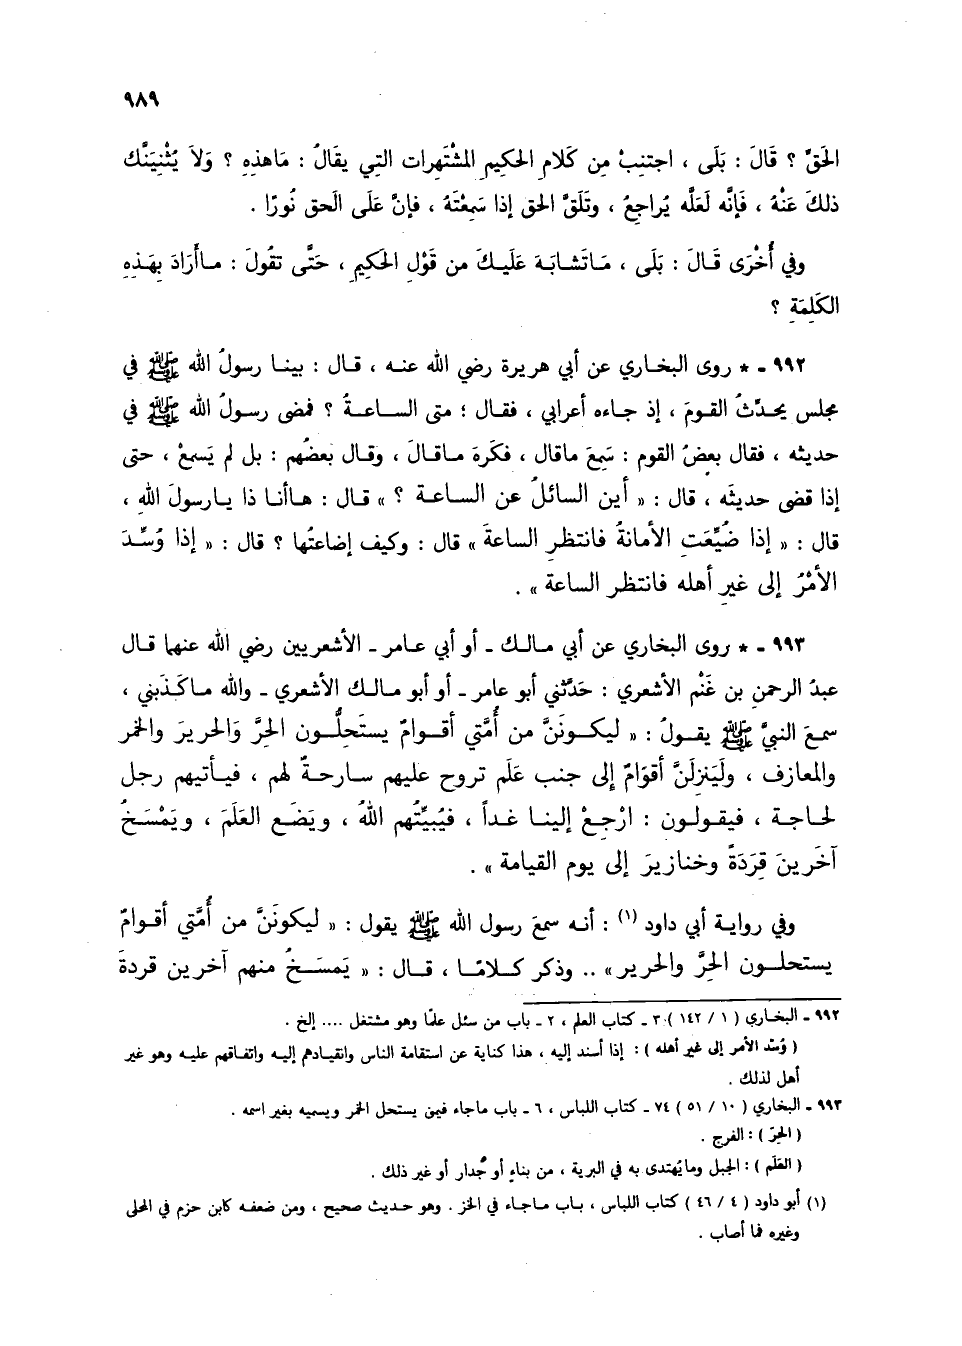 ٩٨٩
الحَقَّ ؟ قَالَ : بَلَى ، اجتنِبْ مِن كَلامِ الحكيمِ المشْتَهِرات التِي يقَالُ : مَاهذِهِ ؟ وَلاَ يُثْنِيَنَّك
ذلكَ عَنْهُ ، فَإنَّه لَعَلَّه يُراجِعُ ، وتَلَقَّ الحق إذا سَمِعْتَهُ ، فإنَّ عَلَى الَحق نُورًا .
وفي أُخْرَى قَالَ : بَلَى ، مَاتَشَابَهَ عَلَيكَ من قَوْلِ الحَكيمِ ، حَتَّى تقُولَ : ماأَرَادَ بِهَذِهِ
الكَلِمَةِ ؟
٩٩٢ - * روى البخاري عن أبي هريرة رضي الله عنه ، قال : بينا رسولُ الله ﷺ في
مجلس يحدِّثُ القومَ ، إذ جاءه أعرابي ، فقال ؛ متى الساعةُ ؟ فمضى رسولُ الله ﷺ في
حديثه ، فقال بعضُ القوم : سَمِعَ ماقال ، فكَرِهَ ماقالَ ، وقال بعضُهم : بل لم يَسمعْ ، حتى
إذا قضى حديثَه ، قال : « أين السائلُ عن الساعة ؟ » قال : هاأنا ذا يارسولَ اللهِ ،
قال : « إذا ضُيِّعَتِ الأمانةُ فانتظرِ الساعةَ » قال : وكيف إضاعتُها ؟ قال : « إذا وُسِّدَ
الأمْرُ إلى غيرِ أهله فانتظر الساعة » .
٩٩٣ - * روى البخاري عن أبي مالك - أو أبي عامر - الأشعريين رضي الله عنهما قال
عبدُ الرحمنِ بن غَنْم الأشعري : حَدَّثني أبو عامر - أو أبو مالك الأشعري - والله ماكَذَبني ،
سمعَ النبيَّ ﷺ يقولُ : « ليكونَنَّ من أُمَّتي أقوامٌ يستَحِلُّون الحِرَّ وَالحريرَ والخمر
والمعازف ، ولَيَنزِلَنَّ أقوَامٌ إلى جنب عَلَم تروح عليهم سارحةٌ لهم ، فيأتيهم رجل
لحاجة ، فيقولون : ارْجِعْ إلينا غداً ، فيُبيِّتُهم اللهُ ، ويَضَع العَلَمَ ، ويَمْسَخُ
آخَرينَ قِرَدَةً وخنازيرَ إلى يوم القيامة » .
وفي رواية أبي داود (١) : أنه سمعَ رسول الله ﷺ يقول : « ليكونَنَّ من أُمَّتي أقوامٌ
يستحلون الحِرَّ والحرير » .. وذكر كلامًا ، قال : « يَمسَخُ منهم آخرين قردةً
٩٩٢ - البخاري ( ١ / ١٤٢ ) ٣ - كتاب العلم ، ٢ - باب من سئل علمًا وهو مشتغل .... إلخ .
( وُسّد الأمر إلى غير أهله ) : إذا أسند إليه ، هذا كناية عن استقامة الناس وانقيادهم إليه واتفاقهم عليه وهو غير
أهل لذلك .
٩٩٣ - البخاري ( ١٠ / ٥١ ) ٧٤ - كتاب اللباس ، ٦ - باب ماجاء فيمن يستحل الخمر ويسميه بغير اسمه .
( الحِرّ ) : الفرج .
( العَلَم ) : الجبل ومايُهتدى به في البرية ، من بناءٍ أو جُدار أو غير ذلك .
(١) أبو داود ( ٤ / ٤٦ ) كتاب اللباس ، باب ماجاء في الخز . وهو حديث صحيح ، ومن ضعفه كابن حزم في المحلى
وغيره فما أصاب .